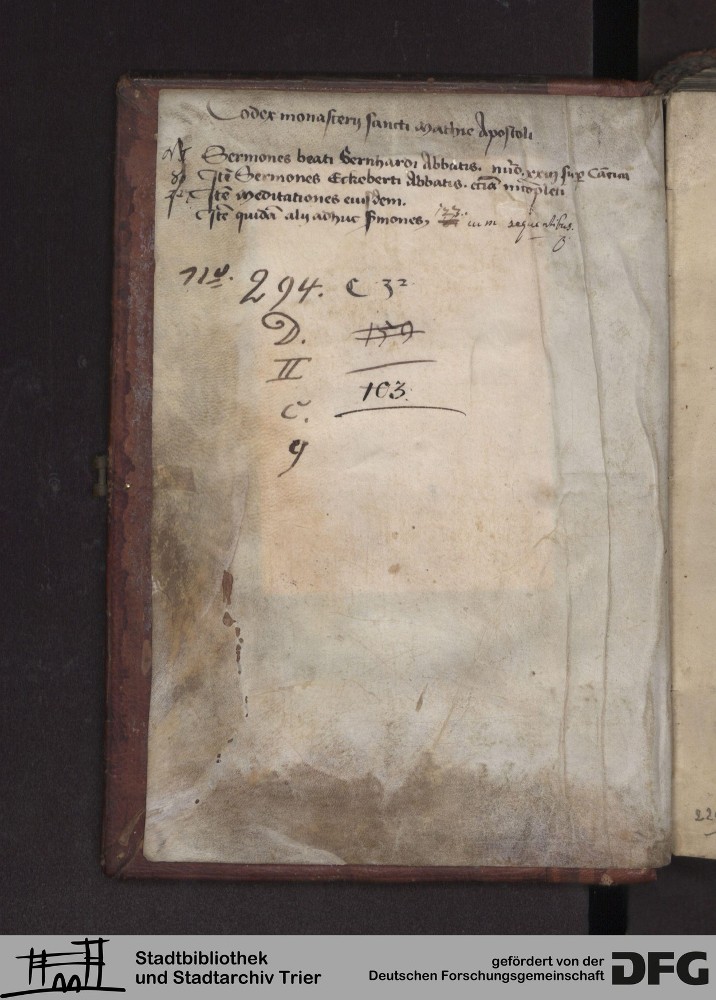 Codex monasterij sancti Mathie Apostoli
Sermones beati Bernhardi Abbatis. xxiij sup Cantica
Itē Sermones Eckeberti Abbatis.
Itē Meditationes eiusdem.
Itē quidā alij adhuc sermones, cum sequentibus.
No. 294. C 32
D. 159
II
C. 103.
9
229
Stadtbibliothek
und Stadtarchiv Trier
gefördert von der
Deutschen Forschungsgemeinschaft
DFG